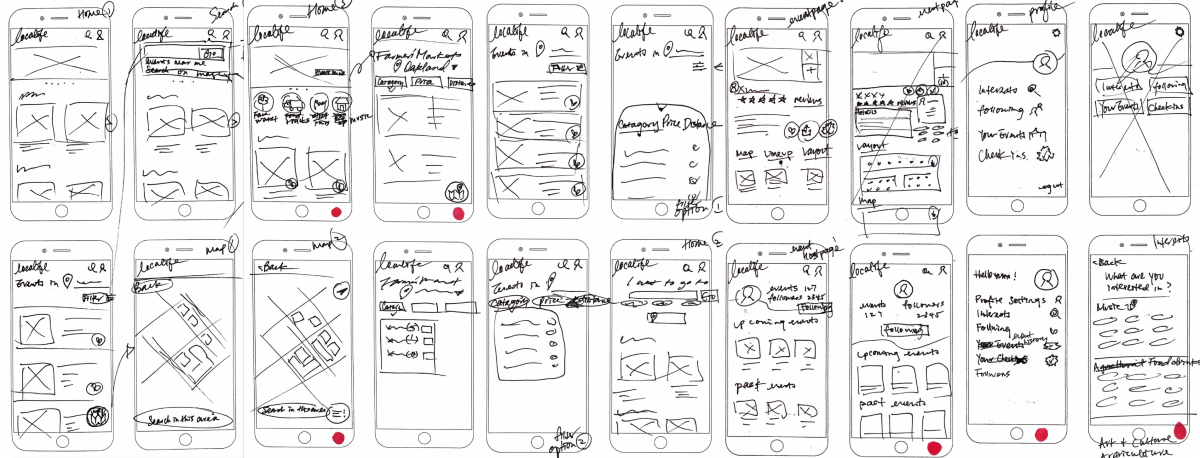 Home 1
localife
Search 1
localife
Go
Events near me
Search on map
Home 3
localife
Farmers Markets
Oakland
Category
Price
Distance
localife
Events in
Filter
localife
Events in
Category Price Distance
Filter
option 1
event page 1
localife
reviews
map lineup layout
event page
localife
xxxx
reviews
Details
Layout
map
profile
Interests
following
Your Events
Check ins
logout
localife
Interests
following
Your Events
Check ins
localife
Events in
Filter
map 1
localife
Back
Search in this area
map 2
<Back
Search in this area
localife
localife
Events in
Category
Price
Distance
Filter
option 2
Home 2
localife
I want to go to
Go
event
host page 1
localife
events 127
followers 2345
Following
upcoming events
past events
localife
events followers
127 2345
Following
upcoming events
past events
Profile Settings
Interests
Following
event
history
Your Events
Followers
Interests
<Back
What are you
interested in?
Music
Food & Drinks
Art & Culture
Agriculture